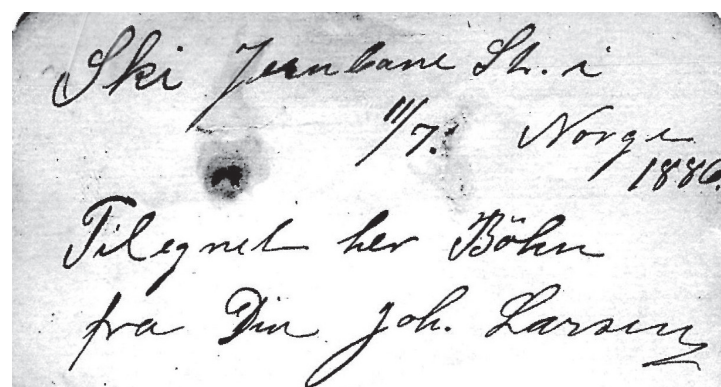 Ski Jernbane St. i
11/7. Norge
1886.
Tilegnet her Böhn
fra Din Joh. Larsen